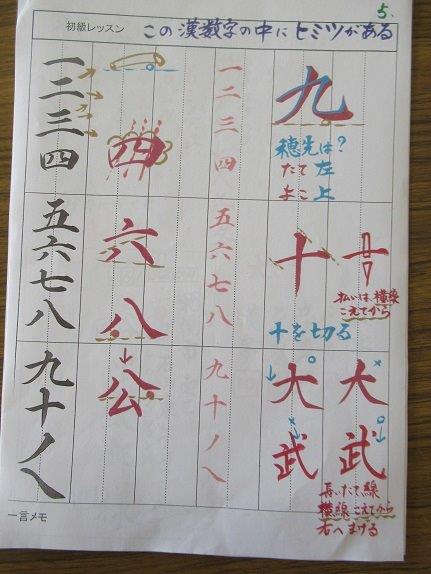 5.
初級レッスン
この漢数字の中にヒミツがある
九
穂先は?
たて 左
よこ 上
十
十を切る
払いは、横線
こえてから
大
武
大
武
長いたて線
横線こえてから
右へまげる
一二三四
五六七八
九十
四
六
八
公
一二三四
五六七八
九十ノ乀
一言メモ